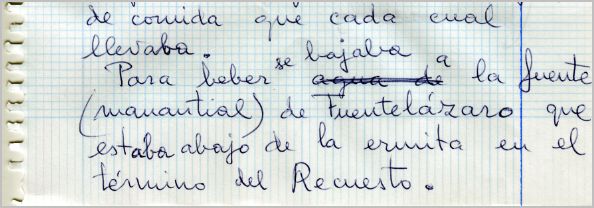 de comida que cada cual
llevaba.
Para beber se bajaba a agua de la fuente
(manantial) de Fuentelázaro que
estaba abajo de la ermita en el
término del Recuesto.